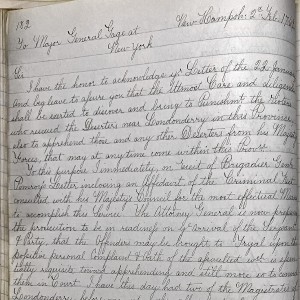 182
New Hampshr: 2d Feb. 176
To Major General Gage at
New York
Sir
I have the honor to acknowledge yr Letter of the 22 January
and beg leave to assure you that the Utmost Care and Diligence
shall be exerted to discover and bring to Punishmt the Persons
who rescued the Deserters near Londonderry in this Province &
also to apprehend those and any other Deserters from his Majes
Forces, that may at any time come within this Provce
To this purpose I immediately, on receit of Brigadier Genl
Pomroys Letter inclosing an Affidavit of the Criminal Fact
consulted with his Majestys Council for the most effectual
to accomplish this Service. The Attorney General is now prepar
the prosecutions to be in readiness on ye arrival of the Sergeant
& Party, that the Offenders may be brought to Tryal upon the
personal Complaint & Oath of the party
requisite toward apprehending and still more so to convict
them in Court. I have this day had two of the Magistrates of
Londonderry